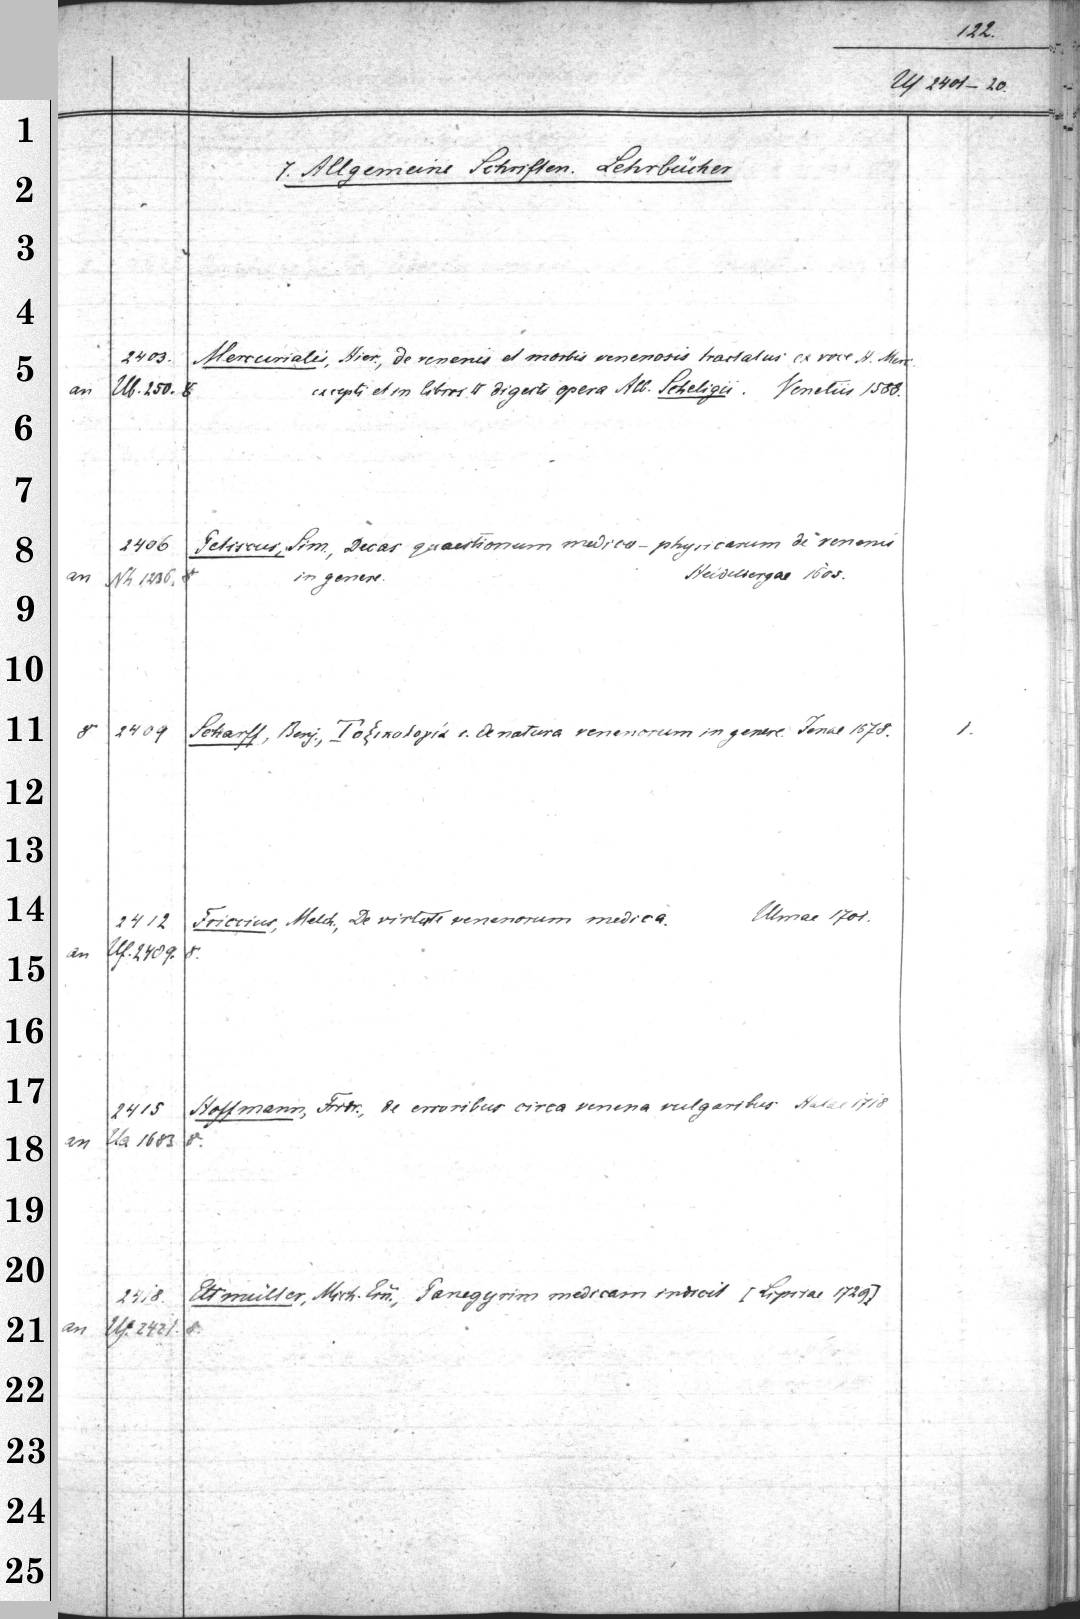 122.
Uf 2401-20.
7. Allgemeine Schriften. Lehrbücher
2403. Mercurialis, Hier., de venenis et morbis venenosis tractatus ex voce H. Merc.
an Ub. 250. 8 excepti et in libros II digesti opera Alb. Scheligii. Venetiis 1588.
2406 Petiscus, Sim., Decas quaestionum medico-physicarum de venenis
an Nh 1236. 8 in genere. Heidelbergae 1605.
8 2409 Scharff, Benj., Τοξικολογία s. de natura venenorum in genere. Jenae 1678. 1.
2412 Friccius, Melch., De virtute venenorum medica. Ulmae 1701.
an Uf. 2489. 8.
2415 Hoffmann, Frdr., de erroribus circa venena vulgaribus Halae 1718
an Ua 1683 8.
2418. Ettmüller, Mich. Ern., Panegyrim medicam indicit [Lipsiae 1729]
an Uf. 2421. 8.
1
2
3
4
5
6
7
8
9
10
11
12
13
14
15
16
17
18
19
20
21
22
23
24
25